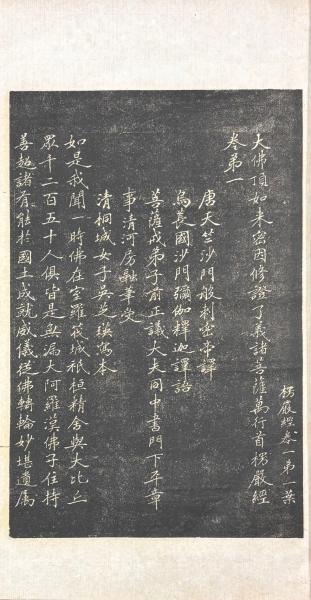 楞嚴經卷一第一葉
大佛頂如來密因修證了義諸菩薩萬行首楞嚴經
卷第一
唐天竺沙門般剌密帝譯
烏萇國沙門彌伽釋迦譯語
菩薩戒弟子前正議大夫同中書門下平章
事清河房融筆受
清桐城女子吳芝瑛寫本
如是我聞一時佛在室羅筏城祇桓精舍與大比丘
眾千二百五十人俱皆是無漏大阿羅漢佛子住持
善超諸有能於國土成就威儀從佛轉輪妙堪遺屬